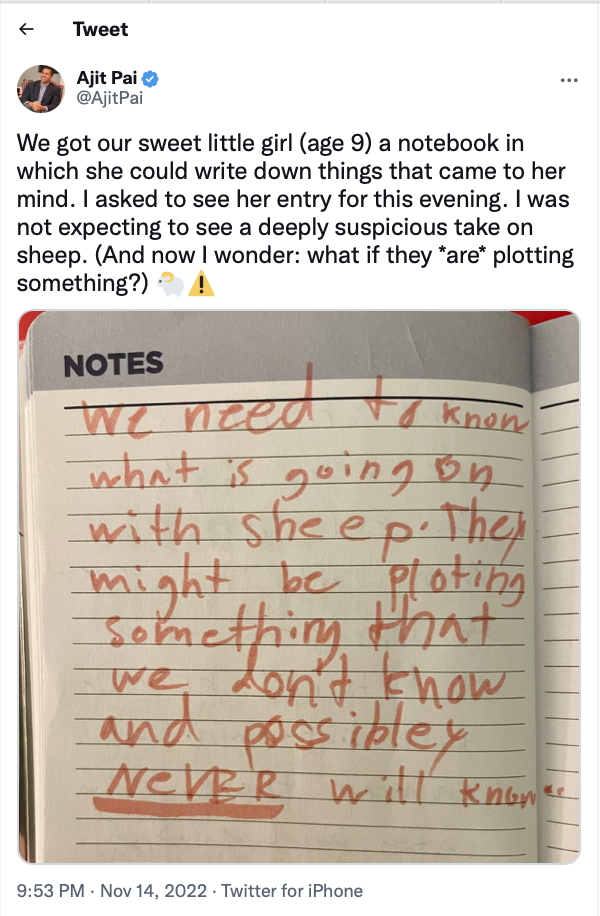 ← Tweet
Ajit Pai
@AjitPai
We got our sweet little girl (age 9) a notebook in
which she could write down things that came to her
mind. I asked to see her entry for this evening. I was
not expecting to see a deeply suspicious take on
sheep. (And now I wonder: what if they *are* plotting
something?) 🐏⚠️
NOTES
We need to know
what is going on
with sheep. They
might be ploting
something that
we don't know
and possibley
NeVER will know..
9:53 PM · Nov 14, 2022 · Twitter for iPhone